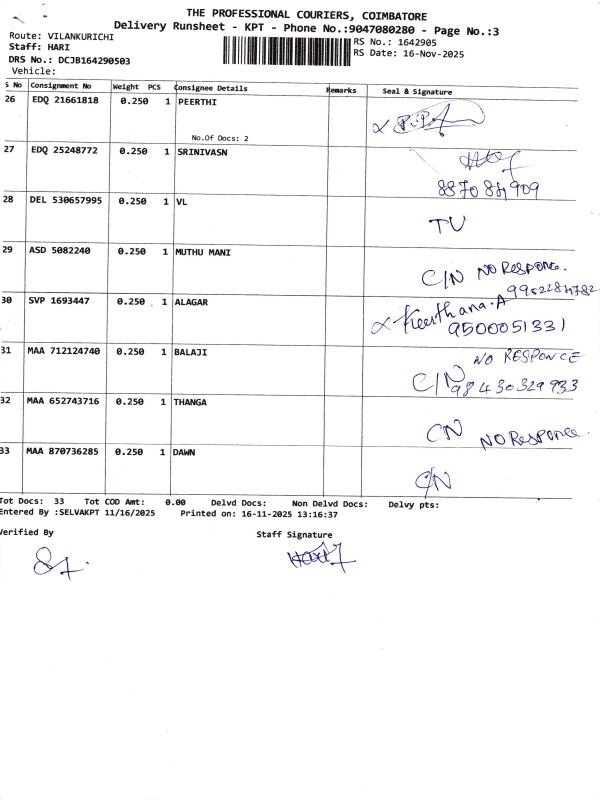 THE PROFESSIONAL COURIERS, COIMBATORE
Delivery Runsheet - KPT - Phone No.:9047080280 - Page No.:3
Route: VILANKURICHI
RS No.: 1642905
Staff: HARI
RS Date: 16-Nov-2025
DRS No.: DCJB164290503
Vehicle:
S No Consignment No Weight PCS Consignee Details Remarks Seal & Signature
26 EDQ 21661818 0.250 1 PEERTHI
No.Of Docs: 2
27 EDQ 25248772 0.250 1 SRINIVASN
28 DEL 530657995 0.250 1 VL TV
29 ASD 5082240 0.250 1 MUTHU MANI C/N NO RESPONC.
9952284782
30 SVP 1693447 0.250 1 ALAGAR Keerthana.A
9500051331
31 MAA 712124740 0.250 1 BALAJI NO RESPONCE
C/N 98430329933
32 MAA 652743716 0.250 1 THANGA CN NO Responce
33 MAA 870736285 0.250 1 DAWN C/N
Tot Docs: 33 Tot COD Amt: 0.00 Delvd Docs: Non Delvd Docs: Delvy pts:
Entered By :SELVAKPT 11/16/2025 Printed on: 16-11-2025 13:16:37
Verified By Staff Signature